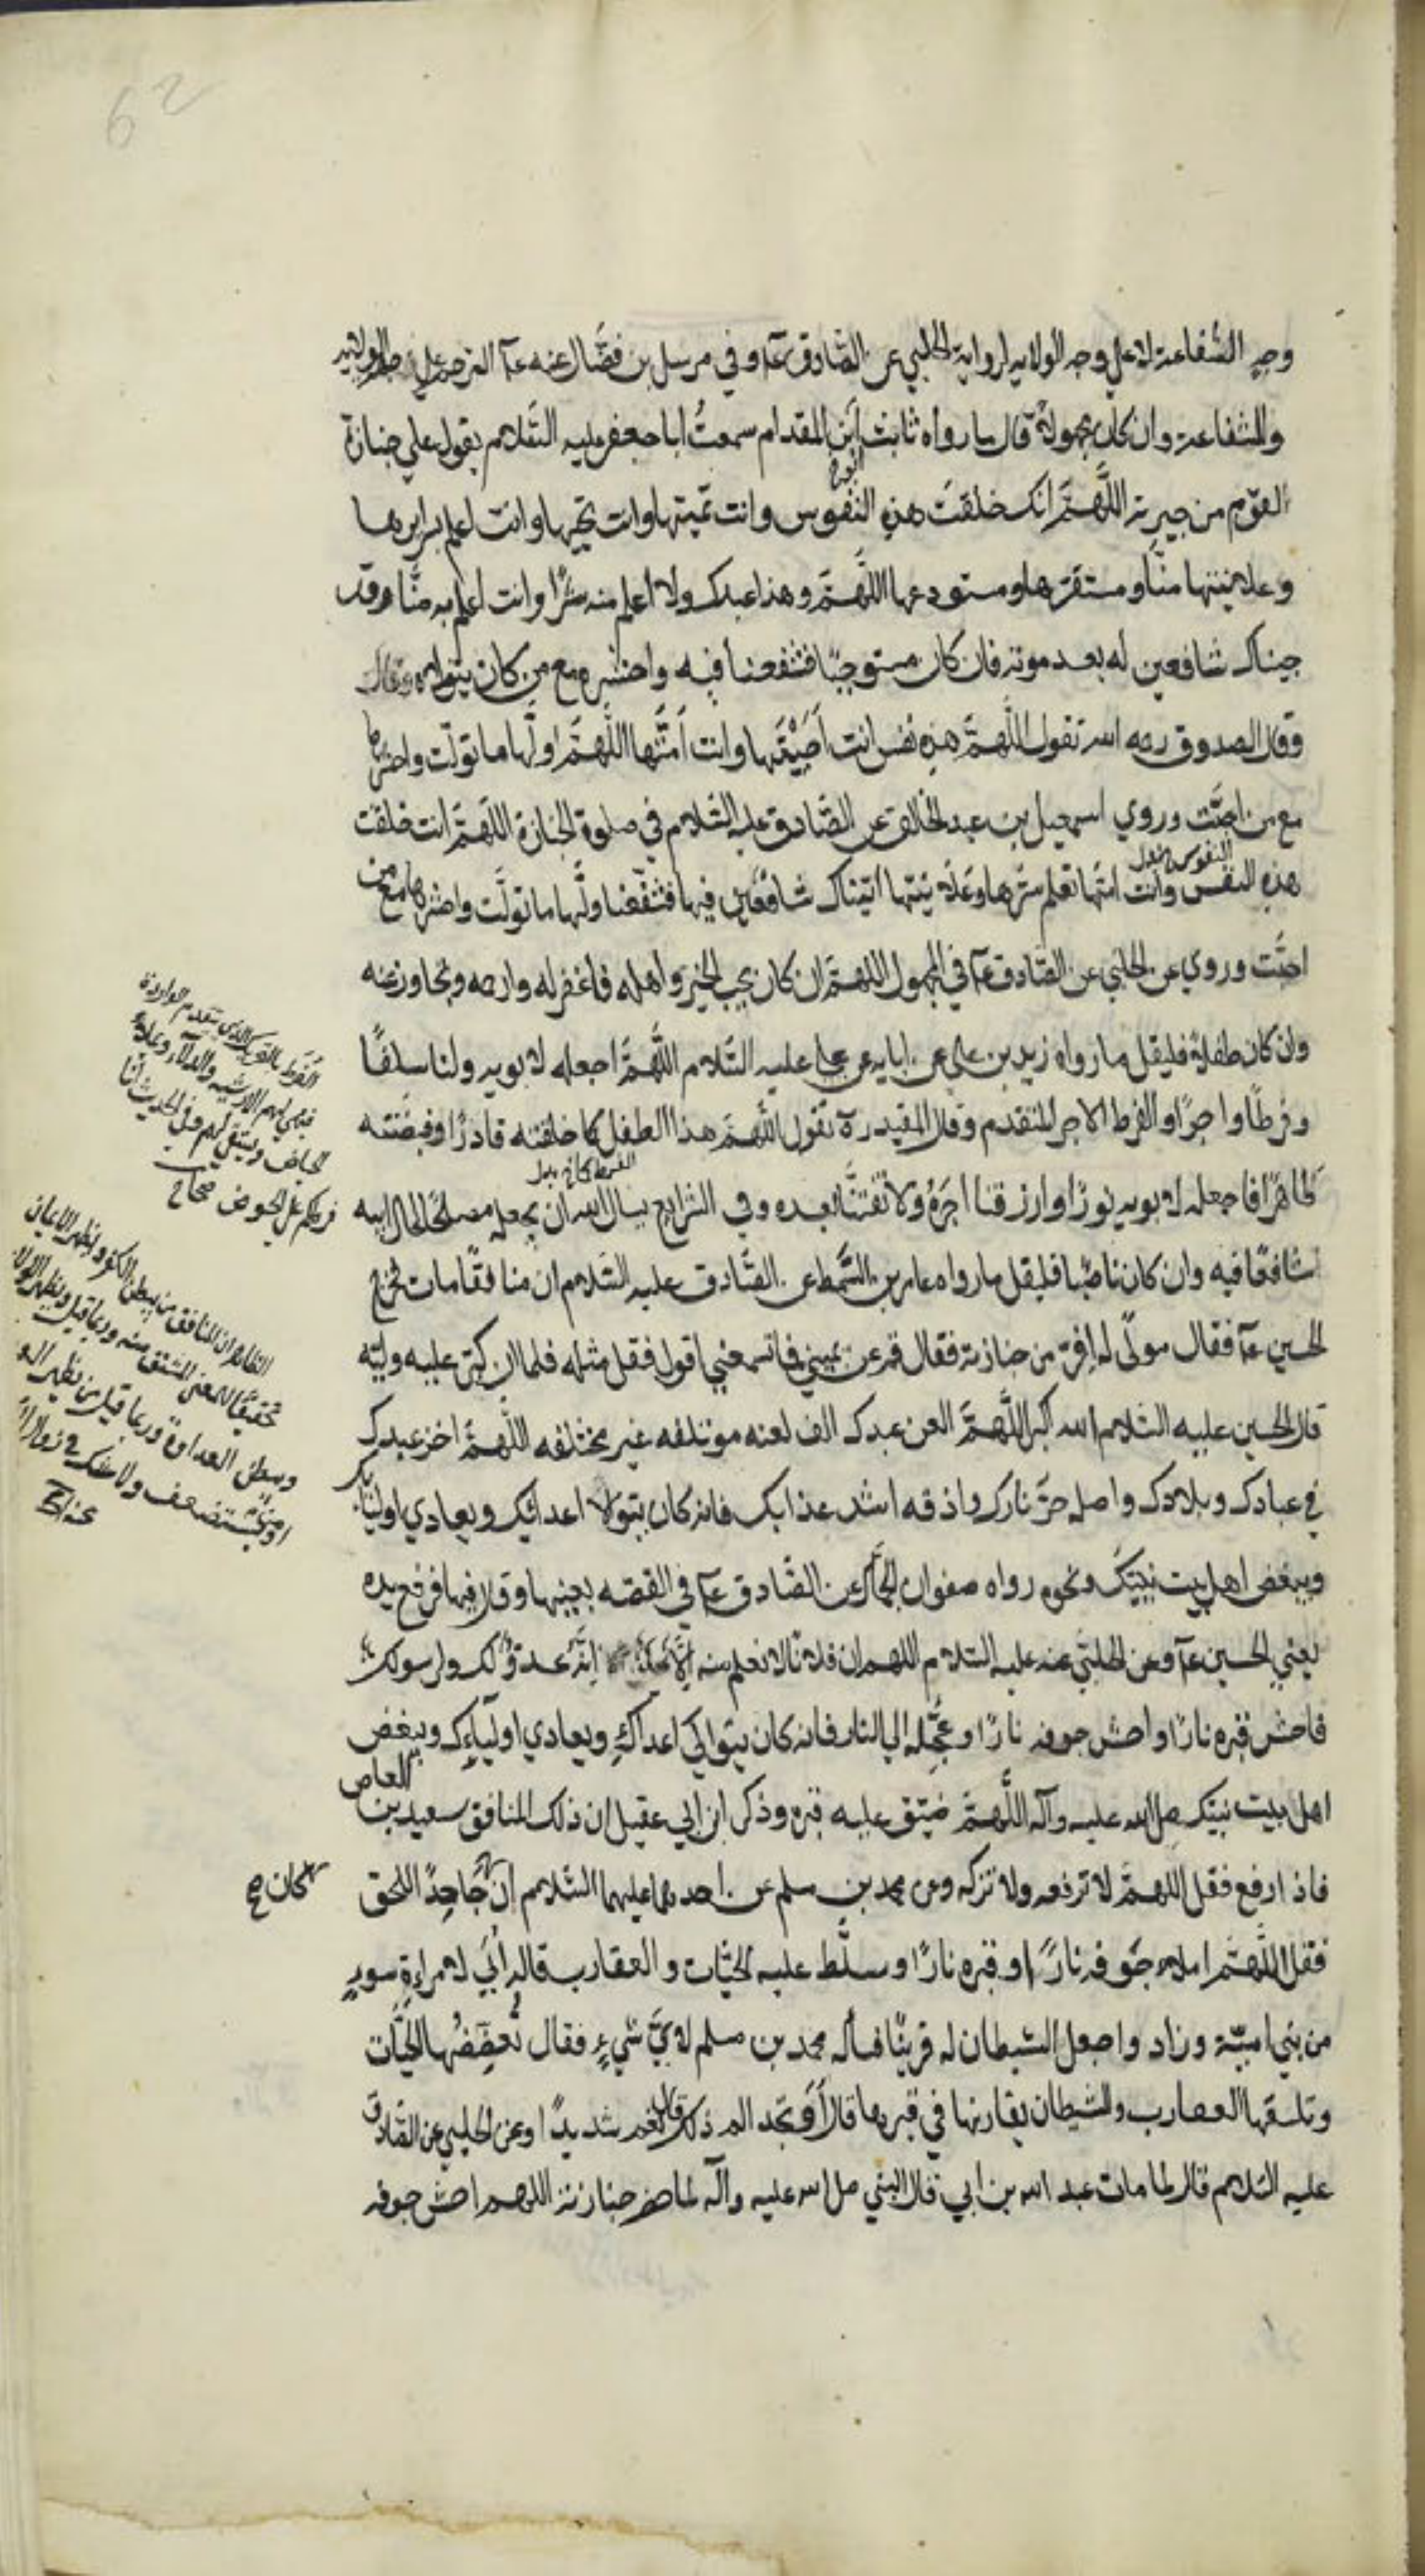 62
وجه الشفاعة لا على وجه الولاية لرواية الحلبي عن الصّادق عآ وفي مرسل بن فضّال عنه عآ الترحم على جهة الولاية
والشفاعة وان كان مجهولا قال ما رواه ثابت ابن المقدام سمعتُ ابا جعفر عليه السّلام يقول علي جنازة
لقوم من جيرته اللَّهمَّ انك خلقتَ هذه النفوس وانت تميتها وانت تحيها وانت اعلم بسرايرها
وعلانيتها منّا ومستقرّها ومستودعها اللَّهمَّ وهذا عبدك ولا اعلم منه شرًا وانت اعلم به منّا وقد
جيناك شافعين له بعد موته فان كان مستوجبًا فشفعنا فيه واحشره مع من كان يتولاه
وقال الصدوق رحه الله تقول اللَّهمَّ هذه نفس انت اَحْيَيْتَها وانت اَمَتَّها اللَّهمَّ اولّها ما تولّت واحشرها
مع من احبَّت وروي اسمعيل بن عبد الخالق عن الصّادق عليه السّلام في صلوة الجنازة اللّهمّ انت خلقت
النفوس
هذه النفس وانت امتّها تعلم سرّها وعَلَانيتها اتيناك شافعين فيها فشفّعنا ولّها ما تولَّت واحشرها مع من
احبَّت وروي عن الحلبي عن الصّادق عآ في المجهول اللهمّ ان كان يحب الخير واهله فاغفر له وارحمه وتجاوز عنه
وان كان طفلا فليقل ما رواه زيد بن علي عن ابايه عن علي عليه السّلام اللَّهمَّ اجعله لابويه ولنا سلفًا
وفرطًا واجرًا والفرط الاجر المتقدم وقال المفيد ره تقول اللّهمّ هذا الطفل كما خلقته قادرًا وقبضته
طاهرًا فاجعله لابويه نورًا وارزقنا اجرَهُ ولا تفتنَّا بعده وفي الشرايع يسال الله ان يجعله مصلحًا لحال ابيه
شافعًا فيه وان كان ناصبًا فليقل ما رواه عامر بن السّمط عن الصّادق عليه السّلام ان منافقًا مات فخرج
الحسين عآ فقال مولًى له افرّ من جنازته فقال قم عن يميني فما تسمعني اقول فقل مثله فلما ان كبّر عليه وليّه
قال الحسين عليه السّلام الله اكبر اللَّهمَّ العن عبدك الف لعنه موتلفه غير مختلفه اللّهمّ اخز عبدك
في عبادك وبلادك واصله حرَّ نارك واذقه اشد عذابك فانه كان يتولا اعدائك ويعادي اوليائك
ويبغض اهل بيت نبيّك ونحوه رواه صفوان الجمّال عن الصّادق عآ في القصه بعينها وقال فيها فرفع يده
يعني الحسين عآ وعن الحلبّي عنه عليه السّلام اللهم ان فلانًا لا نعلم منه الّا انّه عدوّ لك ولرسولك
فاحش قبره نارًا واحش جوفه نارًا وعجِّله الي النار فانه كان يتوالى اعداك ويعادي اوليآءك ويبغض
اهل بيت نبيّك صلي الله عليه وآله اللَّهمَّ ضيّق عليه قبره وذكر ابن ابي عقيل ان ذلك المنافق سعيد بن العاص
فاذا رفع فقل اللهمّ لا ترفعه ولا تزكه وعن محمد بن مسلم عن احدهما عليهما السّلام ان جَاحِدًا للحق
فقل اللَّهمَّ املاء جَوفه نارًا وقبره نارًا وسلَّط عليه الحيّات والعقارب قاله اَبي لامراةِ سوءٍ
من بني اميّة وزاد واجعل الشيطان له قرينًا فساله محمد بن مسلم لايّ شيءٍ فقال تُعضِّضُها الحيَّات
وتلسعها العقارب والشيطان يقارنها في قبرها قال اَو تجد الم ذلك قال نعم شديدًا وعن الحلبي عن الصّادق
عليه السّلام قال لما مات عبد الله بن ابي قال النبي صلى الله عليه وآله لما حضر جنازته اللهم احش جوفه
الفَرَط بالتحريك الذي يتقدم الواردة
فيهي لهم الارشية والدلاء
الحياض ويستقي لهم وفي الحديث انا
فرطكم علي الحوض صحاح
الظاهر ان المنافق من يبطن الكفر ويظهر الايمان
تحقيقًا للمعنى المشتق منه وربما قيل
ويبطن العداوة وربما قيل من يظهر
كان صح